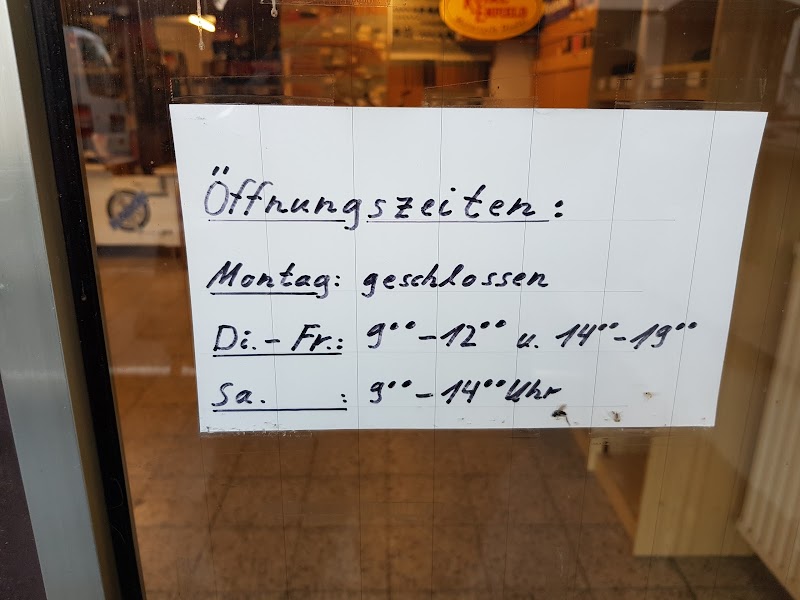 Öffnungszeiten:
Montag: geschlossen
Di.-Fr.: 9°°-12°° u. 14°°-19°°
Sa. : 9°°-14°° Uhr